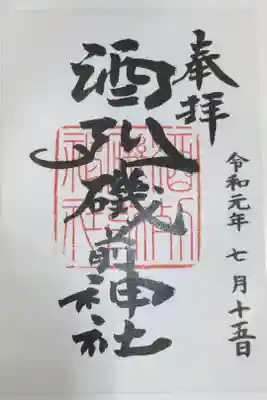 奉拝
酒列磯前神社
令和元年 七月十五日